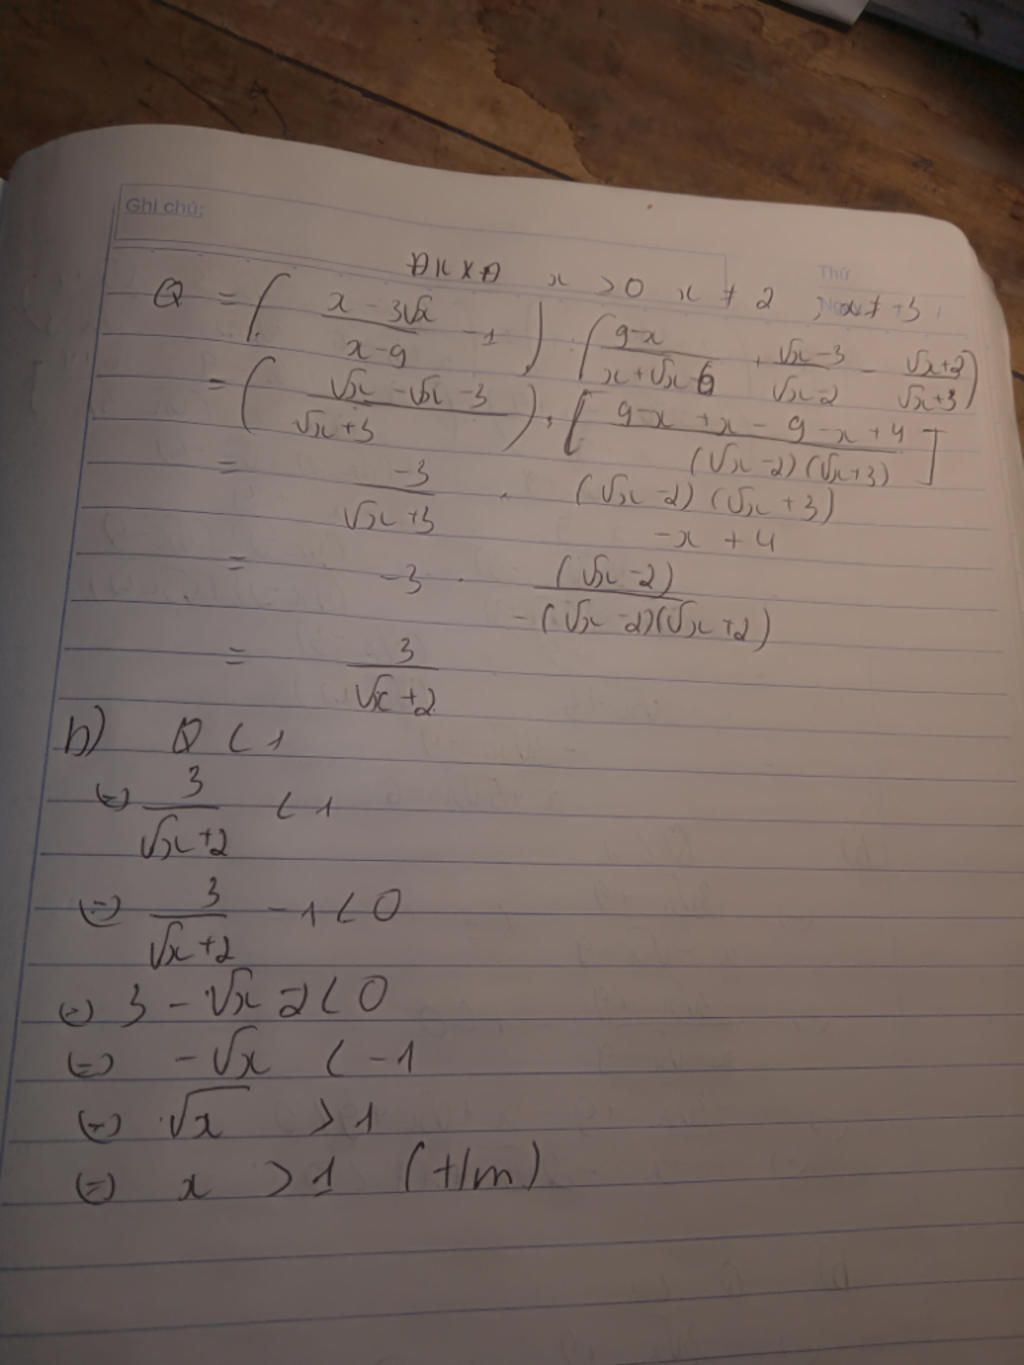 Ghi chú:
Thứ
ĐKXĐ x > 0 x ≠ 2 ; x ≠ +3
Q = ( (x - 3√x)/(x - 9) - 1 ) : ( (9-x)/(x+√x-6) + (√x-3)/(√x-2) - (√x+2)/(√x+3) )
= ( (√x - √x - 3)/(√x+3) ) : [ (9-x+x-9-x+4)/((√x-2)(√x+3)) ]
= -3/(√x+3) . (√x-2)(√x+3)/(-x+4)
= -3 . (√x-2)/(-(√x-2)(√x+2))
= 3/(√x+2)
b) Q < 1
(=) 3/(√x+2) < 1
(=) 3/(√x+2) - 1 < 0
(=) 3 - √x - 2 < 0
(=) -√x < -1
(=) √x > 1
(=) x > 1 (t/m)